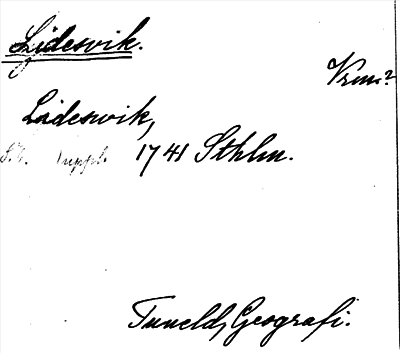 Lidesvik.
Vrml?
Lidesvik,
1741 Sthlm.
Tuneld, Geografi.